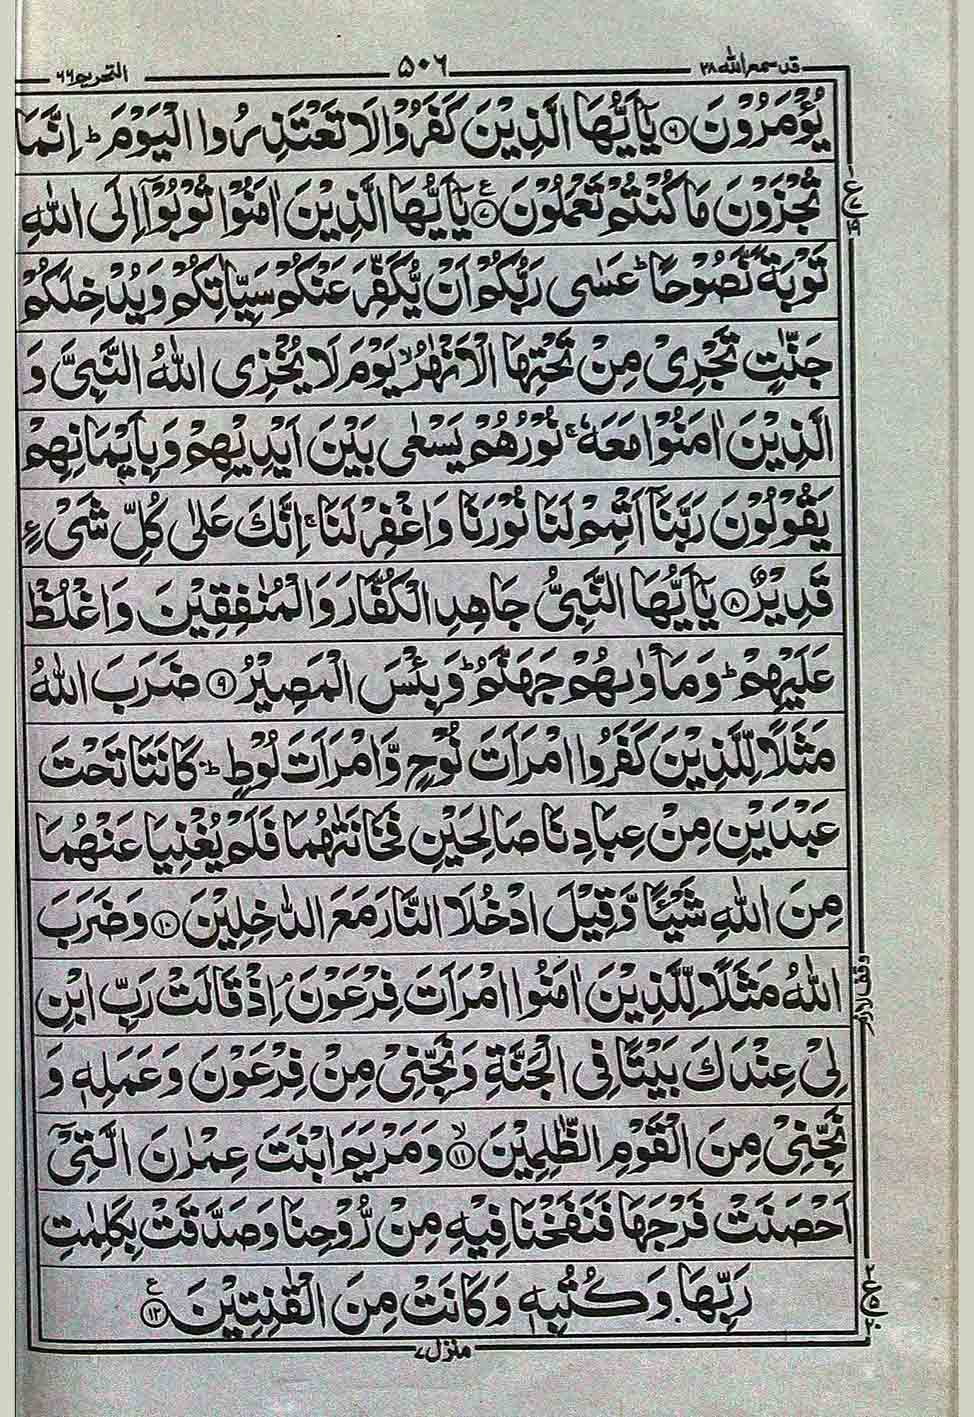 التحریم ٦٦ ٥٠٦ قد سمع اللہ ٢٨
يُؤْمَرُوْنَ ﴿٦﴾ يٰۤاَيُّهَا الَّذِيْنَ كَفَرُوْا لَا تَعْتَذِرُوا الْيَوْمَ ؕ اِنَّمَا
تُجْزَوْنَ مَا كُنْتُمْ تَعْمَلُوْنَ ﴿٧﴾ ع يٰۤاَيُّهَا الَّذِيْنَ اٰمَنُوْا تُوْبُوْۤا اِلَى اللّٰهِ
تَوْبَةً نَّصُوْحًا ؕ عَسٰى رَبُّكُمْ اَنْ يُّكَفِّرَ عَنْكُمْ سَيِّاٰتِكُمْ وَيُدْخِلَكُمْ
جَنّٰتٍ تَجْرِيْ مِنْ تَحْتِهَا الْاَنْهٰرُ ۙ يَوْمَ لَا يُخْزِى اللّٰهُ النَّبِيَّ وَ
الَّذِيْنَ اٰمَنُوْا مَعَهٗ ۚ نُوْرُهُمْ يَسْعٰى بَيْنَ اَيْدِيْهِمْ وَبِاَيْمَانِهِمْ
يَقُوْلُوْنَ رَبَّنَاۤ اَتْمِمْ لَنَا نُوْرَنَا وَاغْفِرْ لَنَا ۚ اِنَّكَ عَلٰى كُلِّ شَيْءٍ
قَدِيْرٌ ﴿٨﴾ يٰۤاَيُّهَا النَّبِيُّ جَاهِدِ الْكُفَّارَ وَالْمُنٰفِقِيْنَ وَاغْلُظْ
عَلَيْهِمْ ؕ وَمَاْوٰىهُمْ جَهَنَّمُ ؕ وَبِئْسَ الْمَصِيْرُ ﴿٩﴾ ضَرَبَ اللّٰهُ
مَثَلًا لِّلَّذِيْنَ كَفَرُوا امْرَاَتَ نُوْحٍ وَّامْرَاَتَ لُوْطٍ ؕ كَانَتَا تَحْتَ
عَبْدَيْنِ مِنْ عِبَادِنَا صَالِحَيْنِ فَخَانَتٰهُمَا فَلَمْ يُغْنِيَا عَنْهُمَا
مِنَ اللّٰهِ شَيْئًا وَّقِيْلَ ادْخُلَا النَّارَ مَعَ الدّٰخِلِيْنَ ﴿١٠﴾ وَضَرَبَ
اللّٰهُ مَثَلًا لِّلَّذِيْنَ اٰمَنُوا امْرَاَتَ فِرْعَوْنَ ۘ اِذْ قَالَتْ رَبِّ ابْنِ
لِيْ عِنْدَكَ بَيْتًا فِى الْجَنَّةِ وَنَجِّنِيْ مِنْ فِرْعَوْنَ وَعَمَلِهٖ وَ
نَجِّنِيْ مِنَ الْقَوْمِ الظّٰلِمِيْنَ ﴿١١﴾ ۙ وَمَرْيَمَ ابْنَتَ عِمْرٰنَ الَّتِيْۤ
اَحْصَنَتْ فَرْجَهَا فَنَفَخْنَا فِيْهِ مِنْ رُّوْحِنَا وَصَدَّقَتْ بِكَلِمٰتِ
رَبِّهَا وَكُتُبِهٖ وَكَانَتْ مِنَ الْقٰنِتِيْنَ ﴿١٢﴾ ع
منزل ٧
ع
١٩
وقف لازم